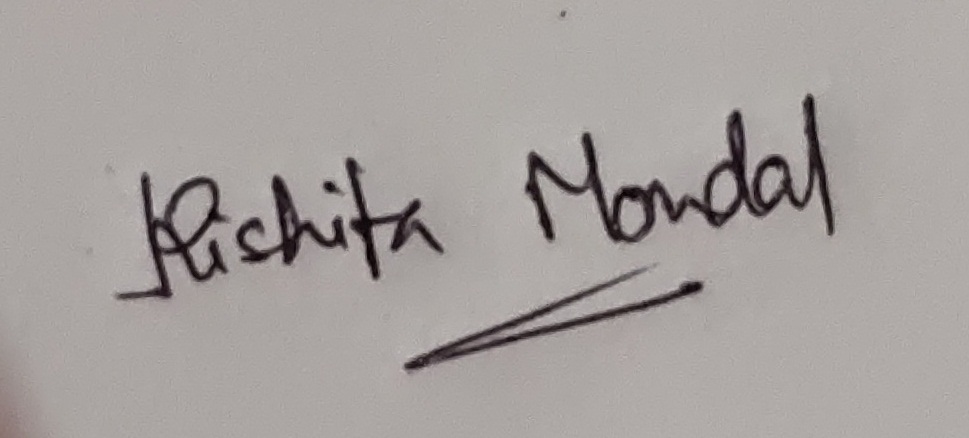 Ruchita Mondal